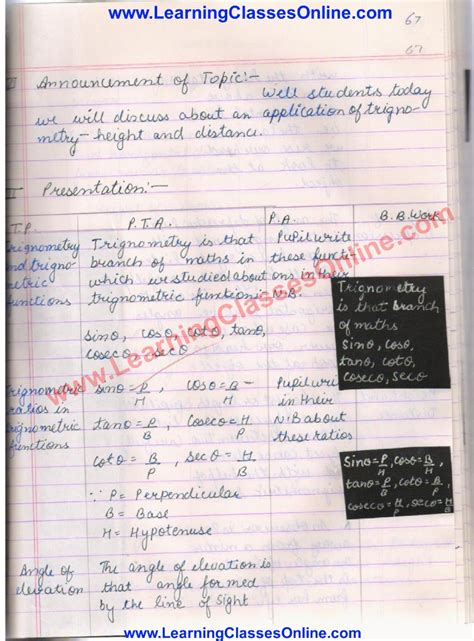 www.LearningClassesOnline.com
67
67
II Announcement of Topic:-
Well students today
we will discuss about an application of trigno-
metry- height and distance.
III Presentation:-
T.P.
P.T.A.
P.A.
B.B.Work
Trignometry
and trigno-
metric
functions
Trignometry is that
branch of maths in
which we studied about
trignometric function:-
sinθ, cosθ, cotθ, tanθ,
cosecθ, secθ
Pupil write
these functi-
ons in their
N.B.
Trignometry
is that branch
of maths
Sinθ, cosθ,
tanθ, cotθ,
cosecθ, secθ
Trignometric
ratios in
trignometric
functions
sinθ = P/H, cosθ = B/H
tanθ = P/B, Cosecθ = H/P
cotθ = B/P, secθ = H/B
∵ P = Perpendicular
B = Base
H = Hypotenuse
Pupil write
in their
N.B about
these ratios
Sinθ = P/H, cosθ = B/H,
tanθ = P/B, cotθ = B/P,
cosecθ = H/P, secθ = H/B
Angle of
elevation
The angle of elevation is
that angle formed
by the line of sight
www.LearningClassesOnline.com
www.LearningClassesOnline.com